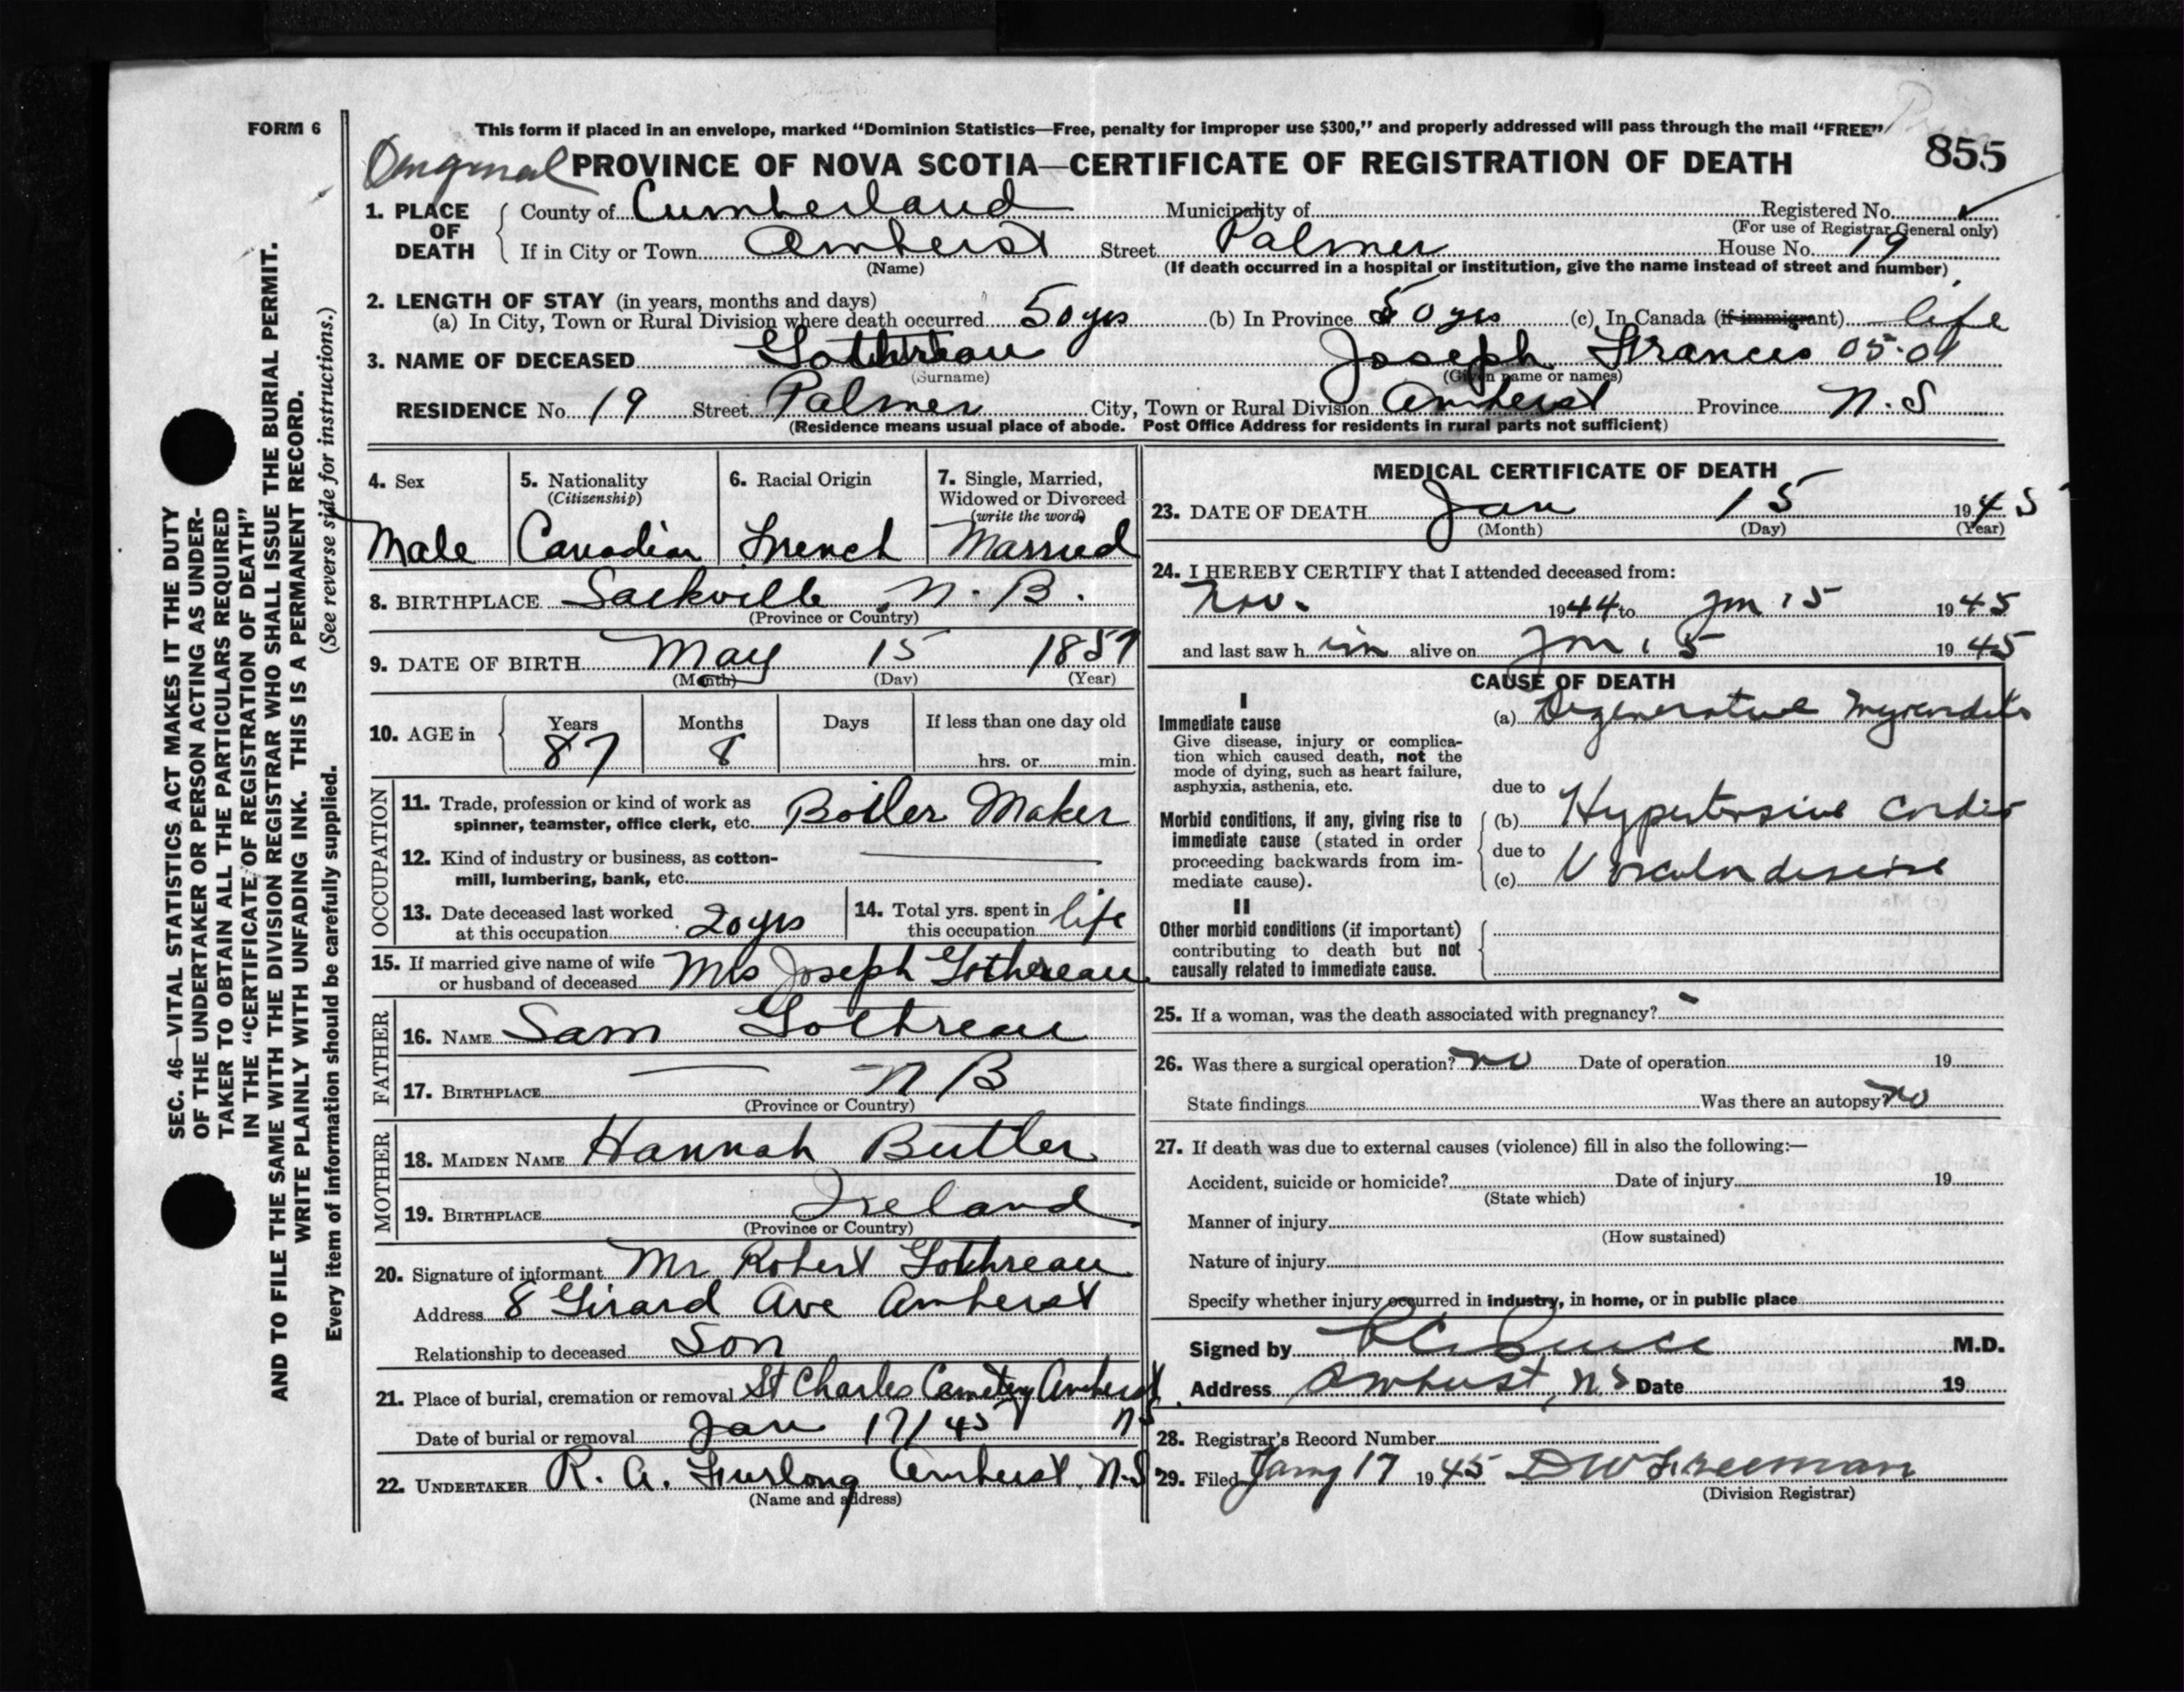 FORM 6
This form if placed in an envelope, marked “Dominion Statistics—Free, penalty for improper use $300,” and properly addressed will pass through the mail “FREE”
Original PROVINCE OF NOVA SCOTIA—CERTIFICATE OF REGISTRATION OF DEATH 855
1. PLACE OF DEATH County of Cumberland Municipality of Registered No.
(For use of Registrar General only)
If in City or Town Amherst Street Palmer House No. 19
(Name) (If death occurred in a hospital or institution, give the name instead of street and number)
2. LENGTH OF STAY (in years, months and days)
(a) In City, Town or Rural Division where death occurred 50 yrs (b) In Province 50 yrs (c) In Canada (if immigrant) life
3. NAME OF DECEASED Gothreau Joseph Francis 05-01
(Surname) (Given name or names)
RESIDENCE No. 19 Street Palmer City, Town or Rural Division Amherst Province N.S
(Residence means usual place of abode. Post Office Address for residents in rural parts not sufficient)
4. Sex 5. Nationality (Citizenship) 6. Racial Origin 7. Single, Married, Widowed or Divorced (write the word)
Male Canadian French Married
8. BIRTHPLACE Sackville N.B.
(Province or Country)
9. DATE OF BIRTH May 15 1857
(Month) (Day) (Year)
10. AGE in Years Months Days If less than one day old
87 8 hrs. or min.
OCCUPATION
11. Trade, profession or kind of work as spinner, teamster, office clerk, etc. Boiler Maker
12. Kind of industry or business, as cotton-mill, lumbering, bank, etc.
13. Date deceased last worked at this occupation 20 yrs 14. Total yrs. spent in this occupation life
15. If married give name of wife or husband of deceased Mrs Joseph Gothereau
FATHER
16. NAME Sam Gothreau
17. BIRTHPLACE N B
(Province or Country)
MOTHER
18. MAIDEN NAME Hannah Butler
19. BIRTHPLACE Ireland
(Province or Country)
20. Signature of informant Mr Robert Gothreau
Address 8 Girard Ave Amherst
Relationship to deceased Son
21. Place of burial, cremation or removal St Charles Cemetery Amherst NS
Date of burial or removal Jan 17/45
22. UNDERTAKER R. A. Furlong Amherst N.S
(Name and address)
MEDICAL CERTIFICATE OF DEATH
23. DATE OF DEATH Jan 15 1945
(Month) (Day) (Year)
24. I HEREBY CERTIFY that I attended deceased from:
Nov. 1944 to Jan 15 1945
and last saw him alive on Jan 15 1945
CAUSE OF DEATH
I
Immediate cause
Give disease, injury or complication which caused death, not the mode of dying, such as heart failure, asphyxia, asthenia, etc.
(a) Degenerative Myocarditis
due to
Morbid conditions, if any, giving rise to immediate cause (stated in order proceeding backwards from immediate cause).
(b) Hypertensive Cardio
due to
(c) Vascular disease
II
Other morbid conditions (if important) contributing to death but not causally related to immediate cause.
25. If a woman, was the death associated with pregnancy?
26. Was there a surgical operation? no Date of operation 19
State findings Was there an autopsy? no
27. If death was due to external causes (violence) fill in also the following:—
Accident, suicide or homicide? Date of injury 19
(State which)
Manner of injury
(How sustained)
Nature of injury
Specify whether injury occurred in industry, in home, or in public place
Signed by M.D.
Address Amherst, N S Date 19
28. Registrar's Record Number
29. Filed Jany 17 1945 D W Freeman
(Division Registrar)
SEC. 46—VITAL STATISTICS ACT MAKES IT THE DUTY
OF THE UNDERTAKER OR PERSON ACTING AS UNDER-
TAKER TO OBTAIN ALL THE PARTICULARS REQUIRED
IN THE “CERTIFICATE OF REGISTRATION OF DEATH”
AND TO FILE THE SAME WITH THE DIVISION REGISTRAR WHO SHALL ISSUE THE BURIAL PERMIT.
WRITE PLAINLY WITH UNFADING INK. THIS IS A PERMANENT RECORD.
Every item of information should be carefully supplied. (See reverse side for instructions.)